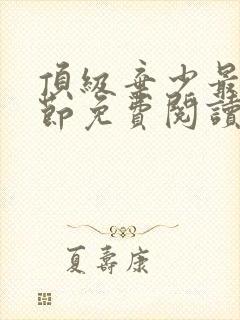 頂級棄少最
節免費閱讀
夏壽康